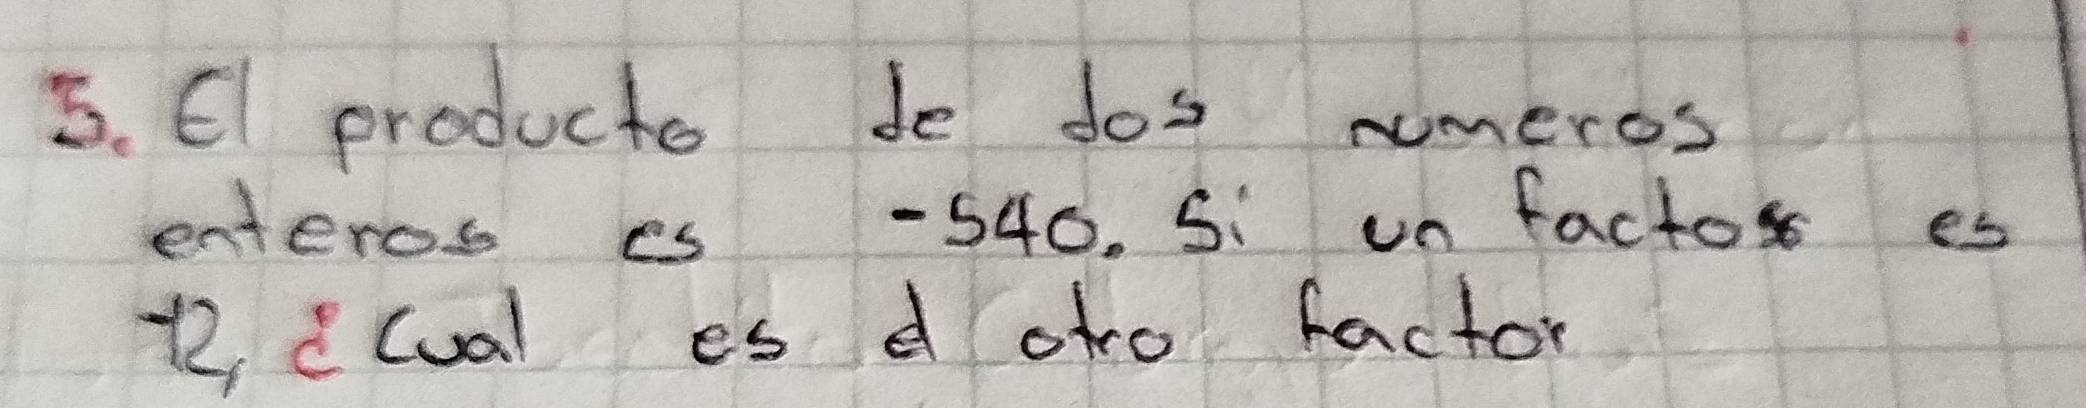 5. El producto de dos numeros
enteros es -540. Si un factor es
-12, ¿Cual es el otro factor